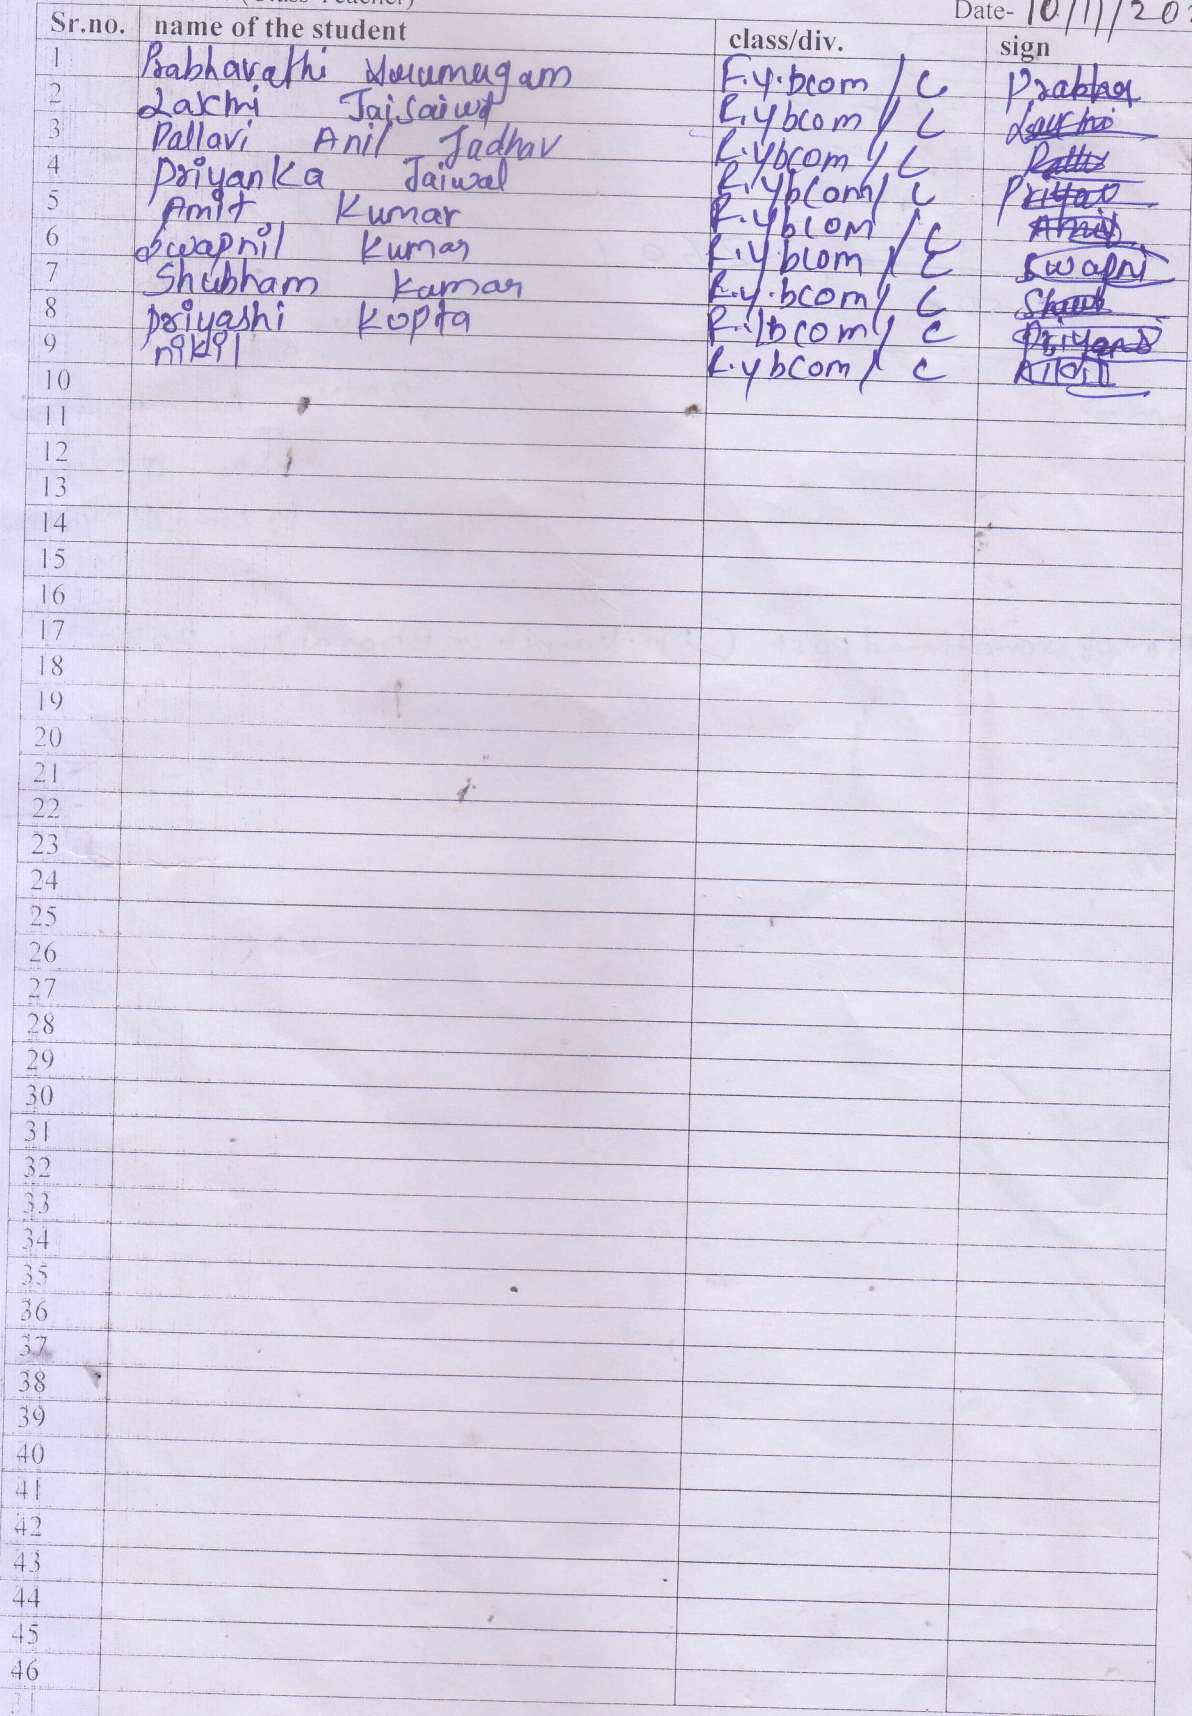 (Class Teacher)
Date- 10/11/202
Sr.no. name of the student class/div. sign
1 Prabhavathi F.y.bcom / C Prabha
2 Lakchi Jaisaiwt F.y bcom / C
3 Pallavi Anil Jadhav F.y bcom / C
4 Priyanka Jaiwal F.y bcom / C Priya
5 Amit Kumar F.y bcom / C Amit
6 Swapnil Kumar F.y bcom / C Swapni
7 Shubham Kumar F.y.bcom / C
8 Priyashi Kopta F.y bcom / C Priyans
9 nikil F.y bcom / C Nikil
10
11
12
13
14
15
16
17
18
19
20
21
22
23
24
25
26
27
28
29
30
31
32
33
34
35
36
37
38
39
40
41
42
43
44
45
46